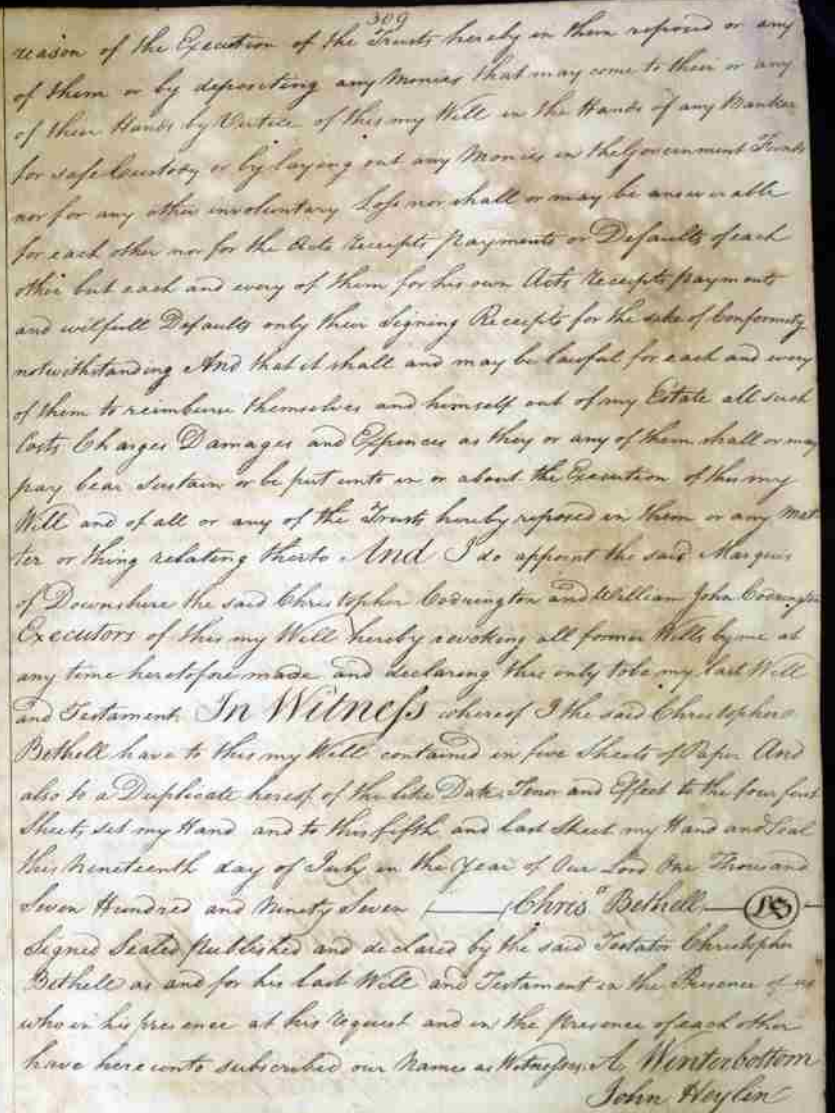 309
reason of the Execution of the Trusts hereby in them reposed or any
of them or by depositing any Monies that may come to their or any
of their Hands by Virtue of this my Will in the Hands of any Banker
for safe Custody or by laying out any Monies in the Government Funds
nor for any other involuntary Loss nor shall or may be answerable
for each other nor for the Acts Receipts Payments or Defaults of each
other but each and every of them for his own Acts Receipts Payments
and wilfull Defaults only their Signing Receipts for the sake of Conformity
notwithstanding And that it shall and may be lawful for each and every
of them to reimburse themselves and himself out of my Estate all such
Costs Charges Damages and Expences as they or any of them shall or may
pay bear sustain or be put unto in or about the Execution of this my
Will and of all or any of the Trusts hereby reposed in them or any mat
ter or thing relating therto And I do appoint the said Marquis
of Downshire the said Christopher Codrington and William John Codrington
Executors of this my Will hereby revoking all former Wills by me at
any time heretofore made and declaring this only to be my last Will
and Testament. In Witness whereof I the said Christopher
Bethell have to this my Will contained in five Sheets of Paper And
also to a Duplicate hereof of the like Date Tenor and Effect to the four first
Sheets set my Hand and to this fifth and last Sheet my Hand and Seal
this Nineteenth day of July in the Year of Our Lord One Thousand
Seven Hundred and Ninety Seven Chris.r Bethell LS
Signed Sealed Published and declared by the said Testator Christopher
Bethell as and for his last Will and Testament in the Presence of us
who in his presence at his request and in the presence of each other
have hereunto subscribed our Names as Witnesses. A. Winterbottom
John Heylin